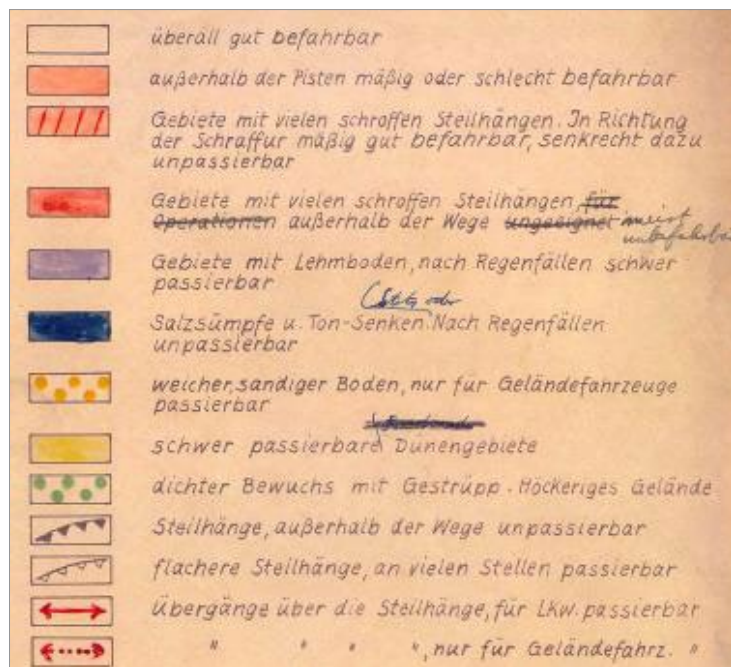 überall gut befahrbar
außerhalb der Pisten mäßig oder schlecht befahrbar
Gebiete mit vielen schroffen Steilhängen. In Richtung
der Schraffur mäßig gut befahrbar, senkrecht dazu
unpassierbar
Gebiete mit vielen schroffen Steilhängen, für
Operationen außerhalb der Wege ungeeignet meist
unbefahrbar
Gebiete mit Lehmboden, nach Regenfällen schwer
passierbar
(Stets oder
Salzsümpfe u. Ton-Senken. Nach Regenfällen
unpassierbar
weicher, sandiger Boden, nur für Geländefahrzeuge
passierbar
schwer passierbare Dünengebiete
dichter Bewuchs mit Gestrüpp. Höckeriges Gelände
Steilhänge, außerhalb der Wege unpassierbar
flachere Steilhänge, an vielen Stellen passierbar
Übergänge über die Steilhänge, für LKw. passierbar
" " " ", nur für Geländefahrz. "